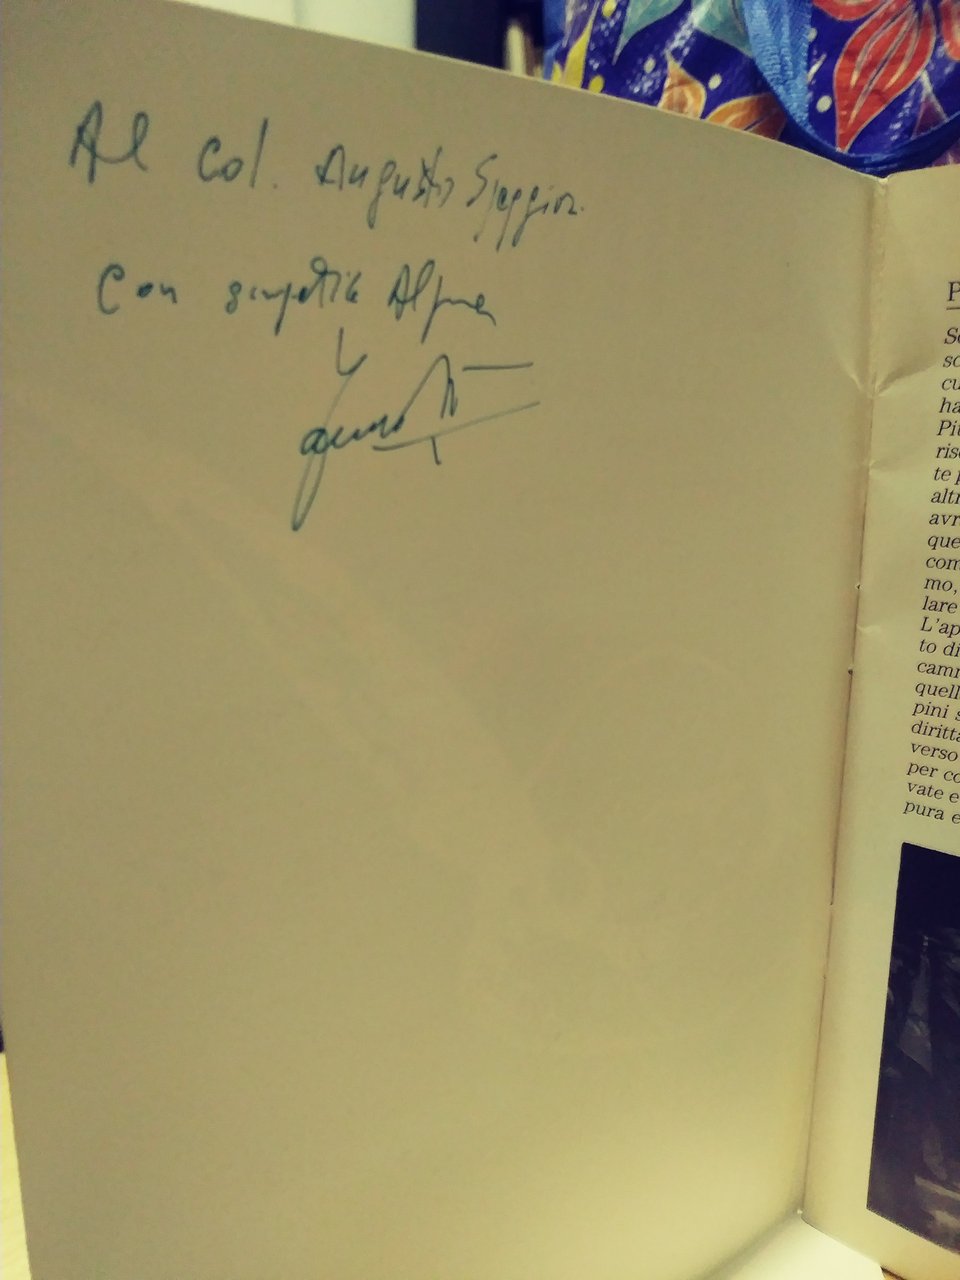 Al Col. Augusto
Con simpatia Alpina
P
So
so
cu
ha
Pit
rise
te p
altr
avr
que
com
mo,
lare
L'ap
to di
camm
quell
pini s
diritta
verso
per co
vate e
pura e